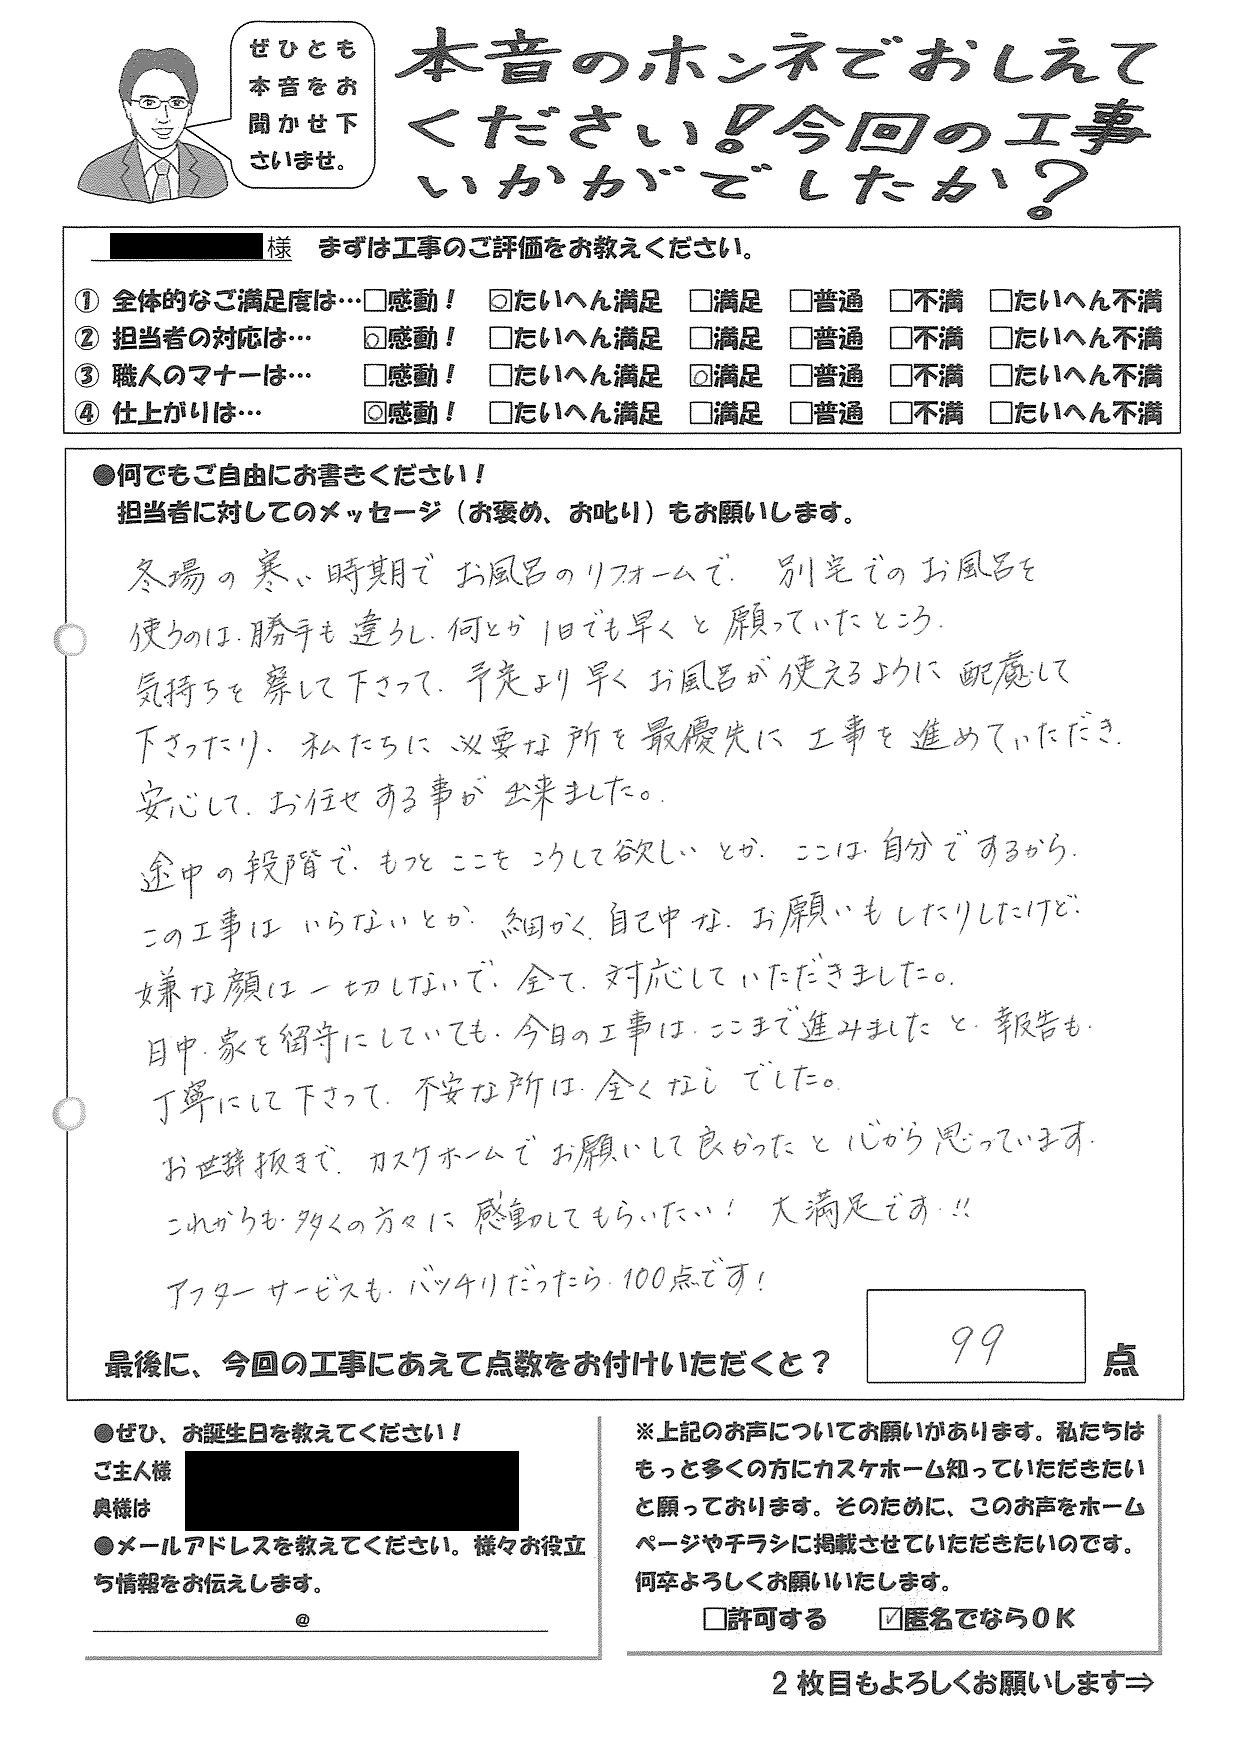 ぜひとも
本音をお
聞かせ下
さいませ。
本音のホンネでおしえて
ください!今回の工事
いかがでしたか?
様 まずは工事のご評価をお教えください。
① 全体的なご満足度は…□感動! ☑たいへん満足 □満足 □普通 □不満 □たいへん不満
② 担当者の対応は… ☑感動! □たいへん満足 □満足 □普通 □不満 □たいへん不満
③ 職人のマナーは… □感動! □たいへん満足 ☑満足 □普通 □不満 □たいへん不満
④ 仕上がりは… ☑感動! □たいへん満足 □満足 □普通 □不満 □たいへん不満
●何でもご自由にお書きください!
担当者に対してのメッセージ(お褒め、お叱り)もお願いします。
冬場の寒い時期でお風呂のリフォームで、別宅でのお風呂を
使うのは、勝手も違うし、何とか1日でも早くと願っていたところ、
気持ちを察して下さって、予定より早くお風呂が使えるように配慮して
下さったり、私たちに必要な所を最優先に工事を進めていただき、
安心して、お任せする事が出来ました。
途中の段階で、もっとここをこうして欲しいとか、ここは自分でするから、
この工事はいらないとか、細かく、自己中な、お願いもしたりしたけど、
嫌な顔は一切しないで、全て、対応していただきました。
日中、家を留守にしていても、今日の工事は、ここまで進みましたと、報告も、
丁寧にして下さって、不安な所は、全くなしでした。
お世辞抜きで、カスケホームでお願いして良かったと心から思っています。
これからも、多くの方々に感動してもらいたい!大満足です!!
アフターサービスも、バッチリだったら、100点です!
最後に、今回の工事にあえて点数をお付けいただくと? 99 点
●ぜひ、お誕生日を教えてください!
ご主人様
奥様は
●メールアドレスを教えてください。様々お役立
ち情報をお伝えします。
@
※上記のお声についてお願いがあります。私たちは
もっと多くの方にカスケホーム知っていただきたい
と願っております。そのために、このお声をホーム
ページやチラシに掲載させていただきたいのです。
何卒よろしくお願いいたします。
□許可する ☑匿名でならOK
2枚目もよろしくお願いします⇒